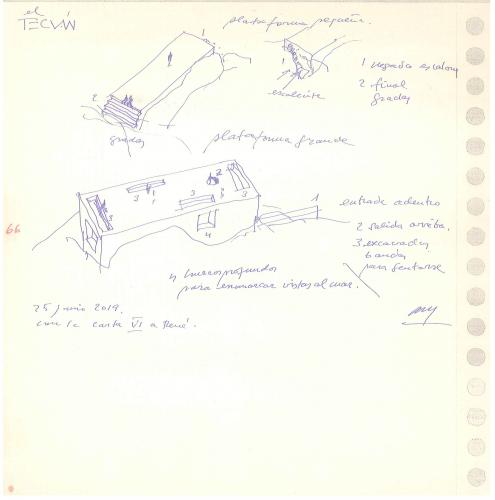 el
TECUÁN
plataforma pequeña.
1 llegada escalera
2 final
gradas
1
1
2
excelente
gradas
plataforma grande
3
2
3
3
1
3
4
1
entrada adentro
2 salida arriba.
3 excavadas
bancas
para sentarse
4 huecos profundos
para enmarcar vistas al mar.
66
25 junio 2019.
con la carta VI a René.